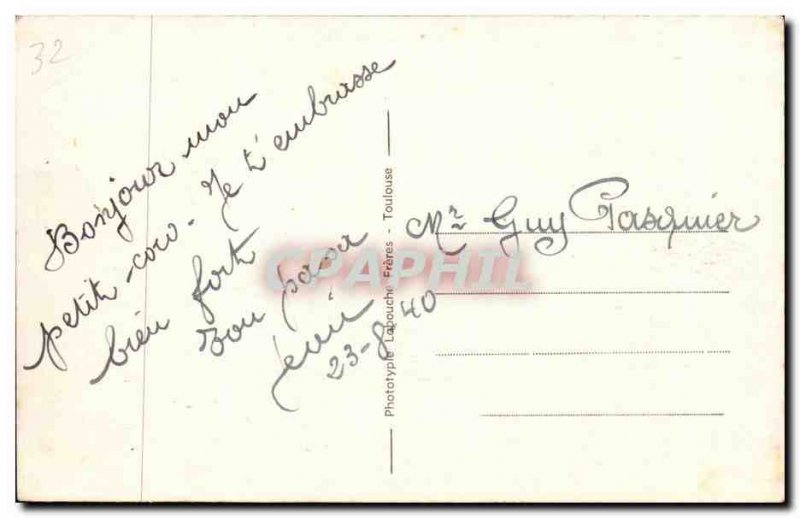 32
Bonjour mon
petit-coco. Je t'embrasse
bien fort
Ton papa
23-8-40
Phototypie Labouche Frères - Toulouse
CPARHIL
Mr Guy Pasquier